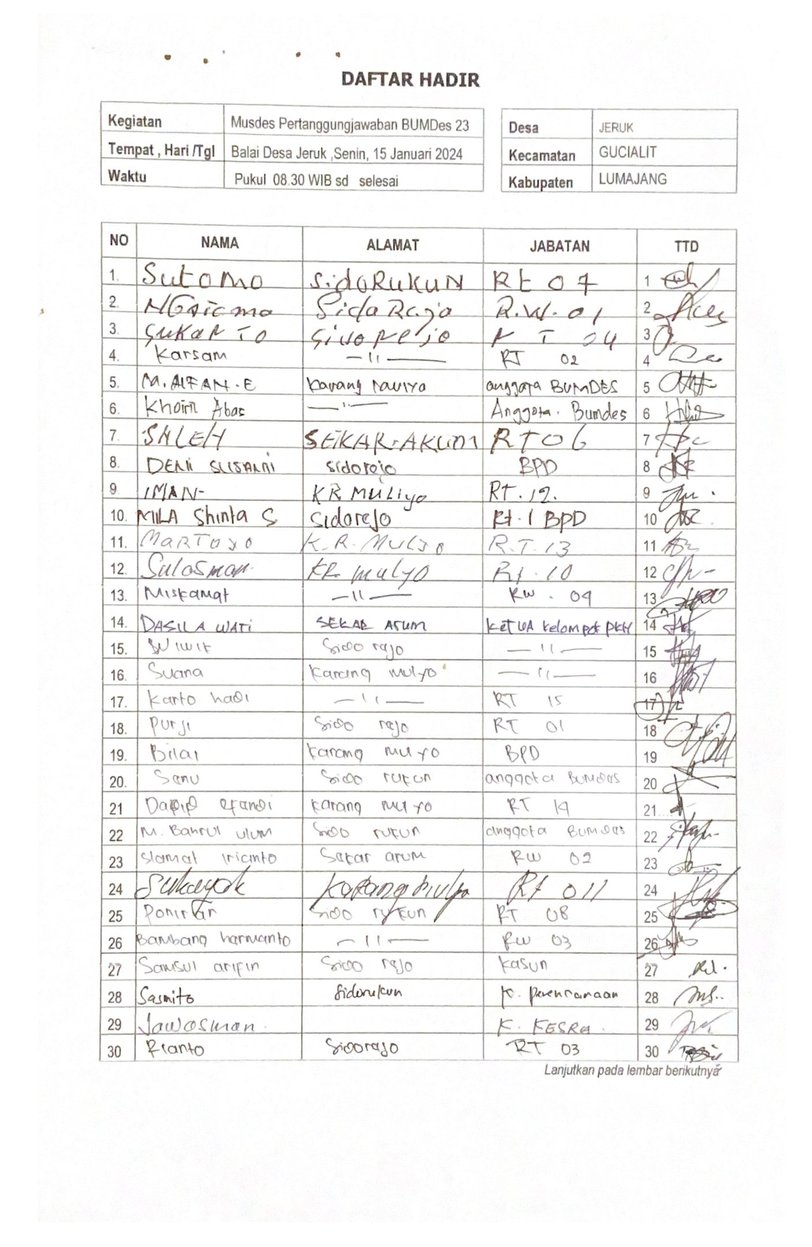 DAFTAR HADIR
Kegiatan Musdes Pertanggungjawaban BUMDes 23
Tempat , Hari /Tgl Balai Desa Jeruk ,Senin, 15 Januari 2024
Waktu Pukul 08.30 WIB sd selesai
Desa JERUK
Kecamatan GUCIALIT
Kabupaten LUMAJANG
NO NAMA ALAMAT JABATAN TTD
1. Sutomo SidoRukun Rt 07 1
2. NGatemo SidoRejo R.W. 01 2
3. SUKARTO Sidorejo RT 04 3
4. Karsam — 11 — RT 02 4
5. M. ALFAN. E karang mulyo anggota BUMDES 5
6. Khoirul Abas — 11 — Anggota. Bumdes 6
7. SALEH SEKAR-AKUM RT 06 7
8. DENI SUSANTI Sidorejo BPD 8
9 IMAN- KR MUliyo RT. 12. 9
10. MILA Shinta S Sidorejo Rt. 1 BPD 10
11. MARTOYO K.R. MULYO R.T. 13 11
12. Sulasman. KR mulyo Rt. 10 12
13. Miskamat — 11 — RW. 04 13
14. DASILA WATI SEKAR Arum KETUA Kelompok PKH 14
15. Wiwit Sido rejo — 11 — 15
16. Suana karang mulyo — 11 — 16
17. Karto hadi — 11 — RT 15 17
18. Purji Sido rejo RT 01 18
19. Bilal karang mulyo BPD 19
20. Sanu Sido rukun anggota BUMDES 20
21 efandi karang mulyo RT 14 21
22 M. Bahrul ulum Sido rukun anggota BUMDES 22
23 Slamat irianto Sekar arum RW 02 23
24 Sukayak Karang Mulyo Rt 011 24
25 Ponirin Sido rukun RT 08 25
26 Bambang harmanto — 11 — RW 03 26
27 Samsul arifin Sido rejo Kasun 27
28 Sasmito Sidorukun K. perencanaan 28
29 Jawasman. K. KESRA. 29
30 Rianto Sidorejo RT 03 30
Lanjutkan pada lembar berikutnya